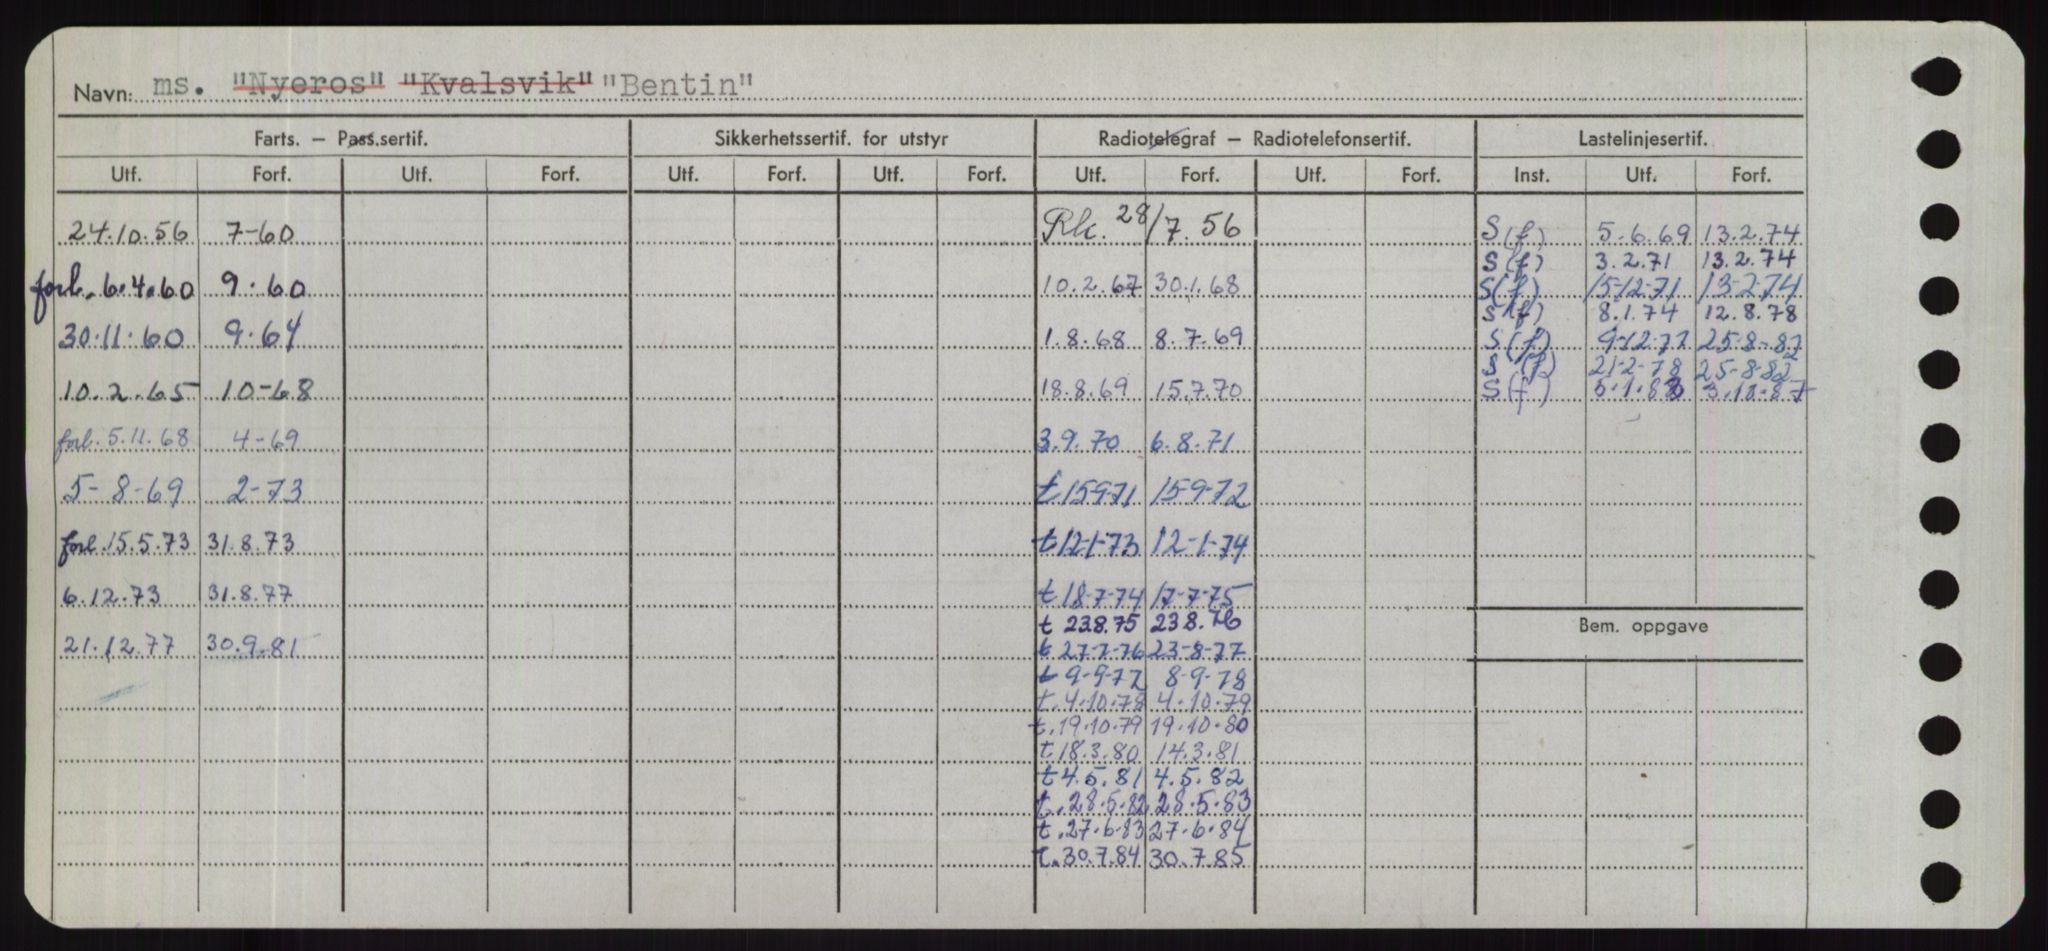 Navn: ms. "Nyeros" "Kvalsvik" "Bentin"
Farts. — Pass.sertif. Sikkerhetssertif. for utstyr Radiotelegraf — Radiotelefonsertif. Lastelinjesertif.
Utf. Forf. Utf. Forf. Utf. Forf. Utf. Forf. Utf. Forf. Utf. Forf. Inst. Utf. Forf.
24.10.56 7-60
forl. 6.4.60 9.60
30.11.60 9.64
10.2.65 10-68
forl. 5.11.68 4-69
5-8-69 2-73
forl. 15.5.73 31.8.73
6.12.73 31.8.77
21.12.77 30.9.81
Rk. 28/7.56
10.2.67 30.1.68
1.8.68 8.7.69
18.8.69 15.7.70
3.9.70 6.8.71
t 15-9-71 15-9-72
t 12-1-73 12-1-74
t 18-7-74 17-7-75
t 23.8.75 23.8.76
t 27-7-76 23-8-77
t 9-9-77 8-9-78
t. 4.10.78 4.10.79
t. 19.10.79 19.10.80
t 18.3.80 14.3.81
t 4.5.81 4.5.82
t. 28.5.82 28.5.83
t. 27.6.83 27.6.84
t. 30.7.84 30.7.85
S(f) 5.6.69 13.2.74
S(f) 3.2.71 13.2.74
S(f) 15-12-71 13-2-74
S(f) 8.1.74 12.8.78
S(f) 9-12-77 25-8-82
S(f) 21-2-78 25-8-82
S(f) 5.1.83
Bem. oppgave